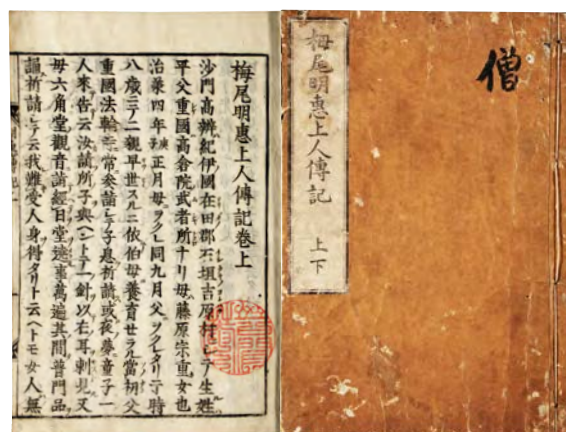 僧
栂尾明惠上人傳記 上下
栂尾明惠上人傳記卷上
沙門高辨紀伊國在田郡石垣吉原村ニシテ生姓
平父重國高倉院武者所ナリ母藤原宗重女也
治承四年庚子正月母ヲクレ同九月父ヲクレタリ于時
八歳ニテ二親早世スルニ依伯母養育セラル當初父
重國法輪ニ常參詣シテ子息祈請或夜夢童子一
人來告云汝請所子與ヘントテ一針以右耳刺見又
母六角堂觀音詣經日堂遶事萬遍其間普門品
誦祈請シテ云我難受人身得タリト云ヘトモ女人無